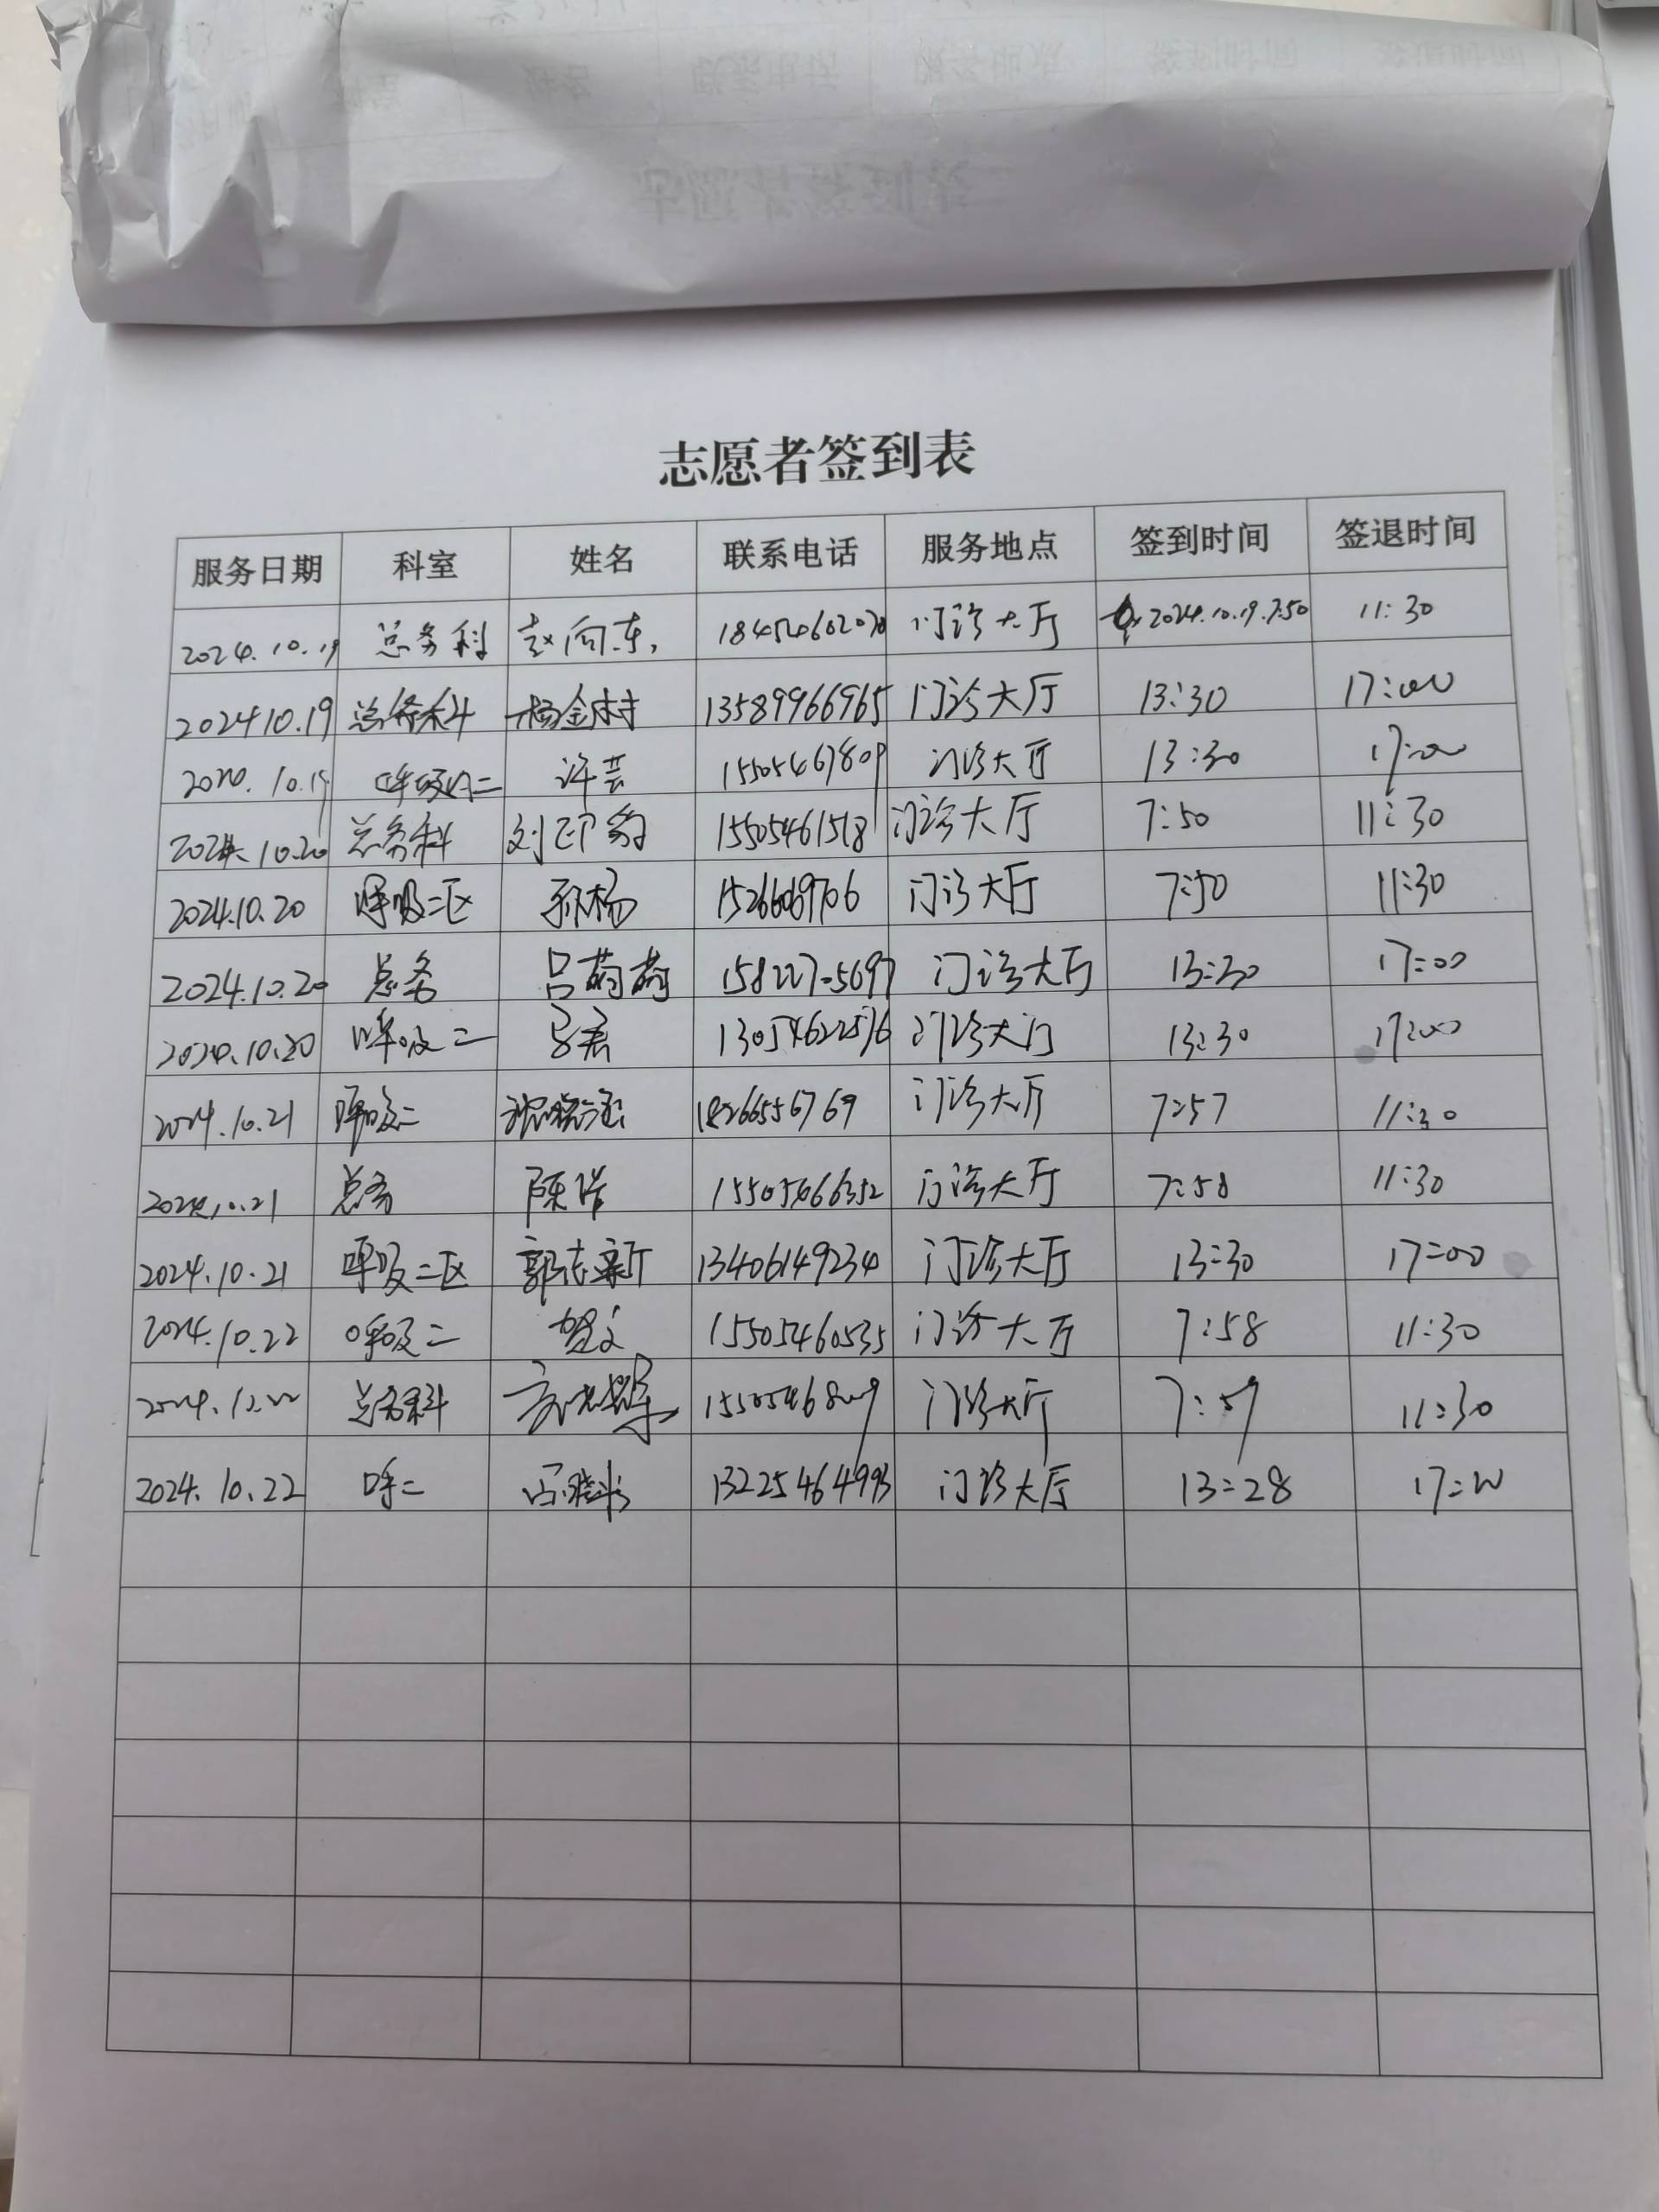 志愿者签到表
服务日期 科室 姓名 联系电话 服务地点 签到时间 签退时间
2024.10.19 总务科 赵向东, 门诊大厅 2024.10.19.7:50 11:30
2024 10.19 总务科 杨金树 13589966965 门诊大厅 13:30 17:00
10.19 呼吸内二 许芸 15505467809 门诊大厅 13:30 17:00
2024.10.20 总务科 15505461518 门诊大厅 7:50 11:30
2024.10.20 呼吸二区 孙杨 门诊大厅 7:50 11:30
2024.10.20 总务 吕萌萌 门诊大厅 13:30 17:00
2024.10.20 呼吸二 13054622576 13:30 17:00
2024.10.21 呼吸二 18266556769 门诊大厅 7:57 11:30
2024.10.21 总务 门诊大厅 7:58 11:30
2024.10.21 呼吸二区 郭志新 13406149234 门诊大厅 13:30 17:00
2024.10.22 呼吸二 15505460535 门诊大厅 7:58 11:30
总务科 门诊大厅 7:59 11:30
2024.10.22 呼二 13225464993 门诊大厅 13:28 17:00